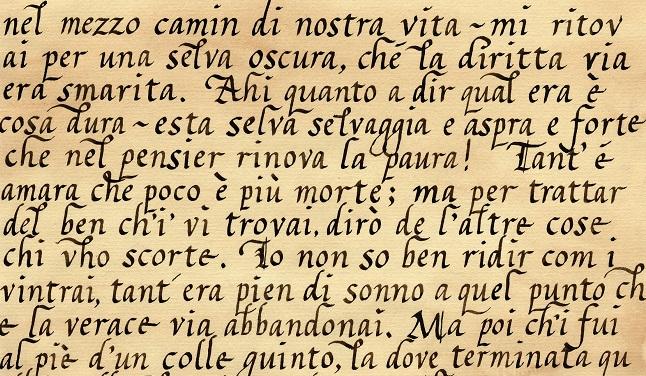 nel mezzo camin di nostra vita ~ mi ritov
ai per una selva oscura, ché la diritta via
era smarita. Ahi quanto a dir qual era è
cosa dura ~ esta selva selvaggia e aspra e forte
che nel pensier rinova la paura! Tant' é
amara che poco è più morte; ma per trattar
del ben ch'i' vi trovai, dirò de l'altre cose
chi vho scorte. Io non so ben ridir com i
vintrai, tant' era pien di sonno a quel punto ch
e la verace via abbandonai. Ma poi ch'i fui
al piè d'un colle guinto, la dove terminata qu